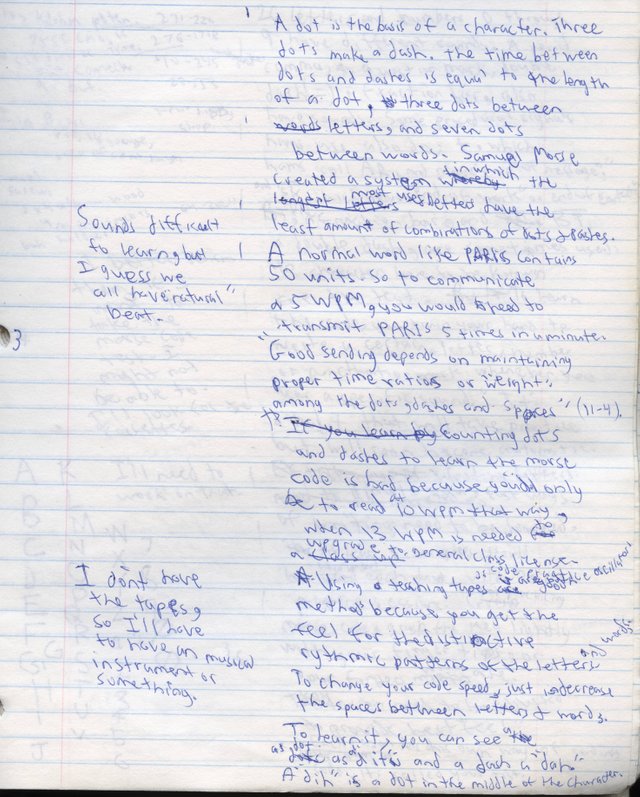 A dot is the basis of a character. Three
dots make a dash. The time between
dots and dashes is equal to the length
of a dot, three dots between
words letters, and seven dots
between words. Samuel Morse
created a system whereby in which the
longest letters most uses letters have the
least amount of combinations of dots & dashes.
Sounds difficult
to learn, but
I guess we
all have "natural"
beat.
A normal word like PARIS contains
50 units. So to communicate
a 5 WPM, you would need to
transmit PARIS 5 times in a minute.
3
"Good sending depends on maintaining
proper time ratios or "weight"
among the dots, dashes and spaces" (11-4).
If you learn by Counting dots
and dashes to learn the morse
code is bad because you'd only
be to read at 10 WPM that way,
when 13 WPM is needed to
a class up upgrade to General class license.
I don't have
the tapes,
so I'll have
to have an musical
instrument or
something.
Using a teaching tapes or code practice oscillator
method because you get the
feel for the distinctive
rythmic patterns of the letters and words.
To change your code speed, just in decrease
the spaces between letters & words.
To learn it, you can see the
dots as dot as a "dit" and a dash a "dah"
A "dih" is a dot in the middle of the character.